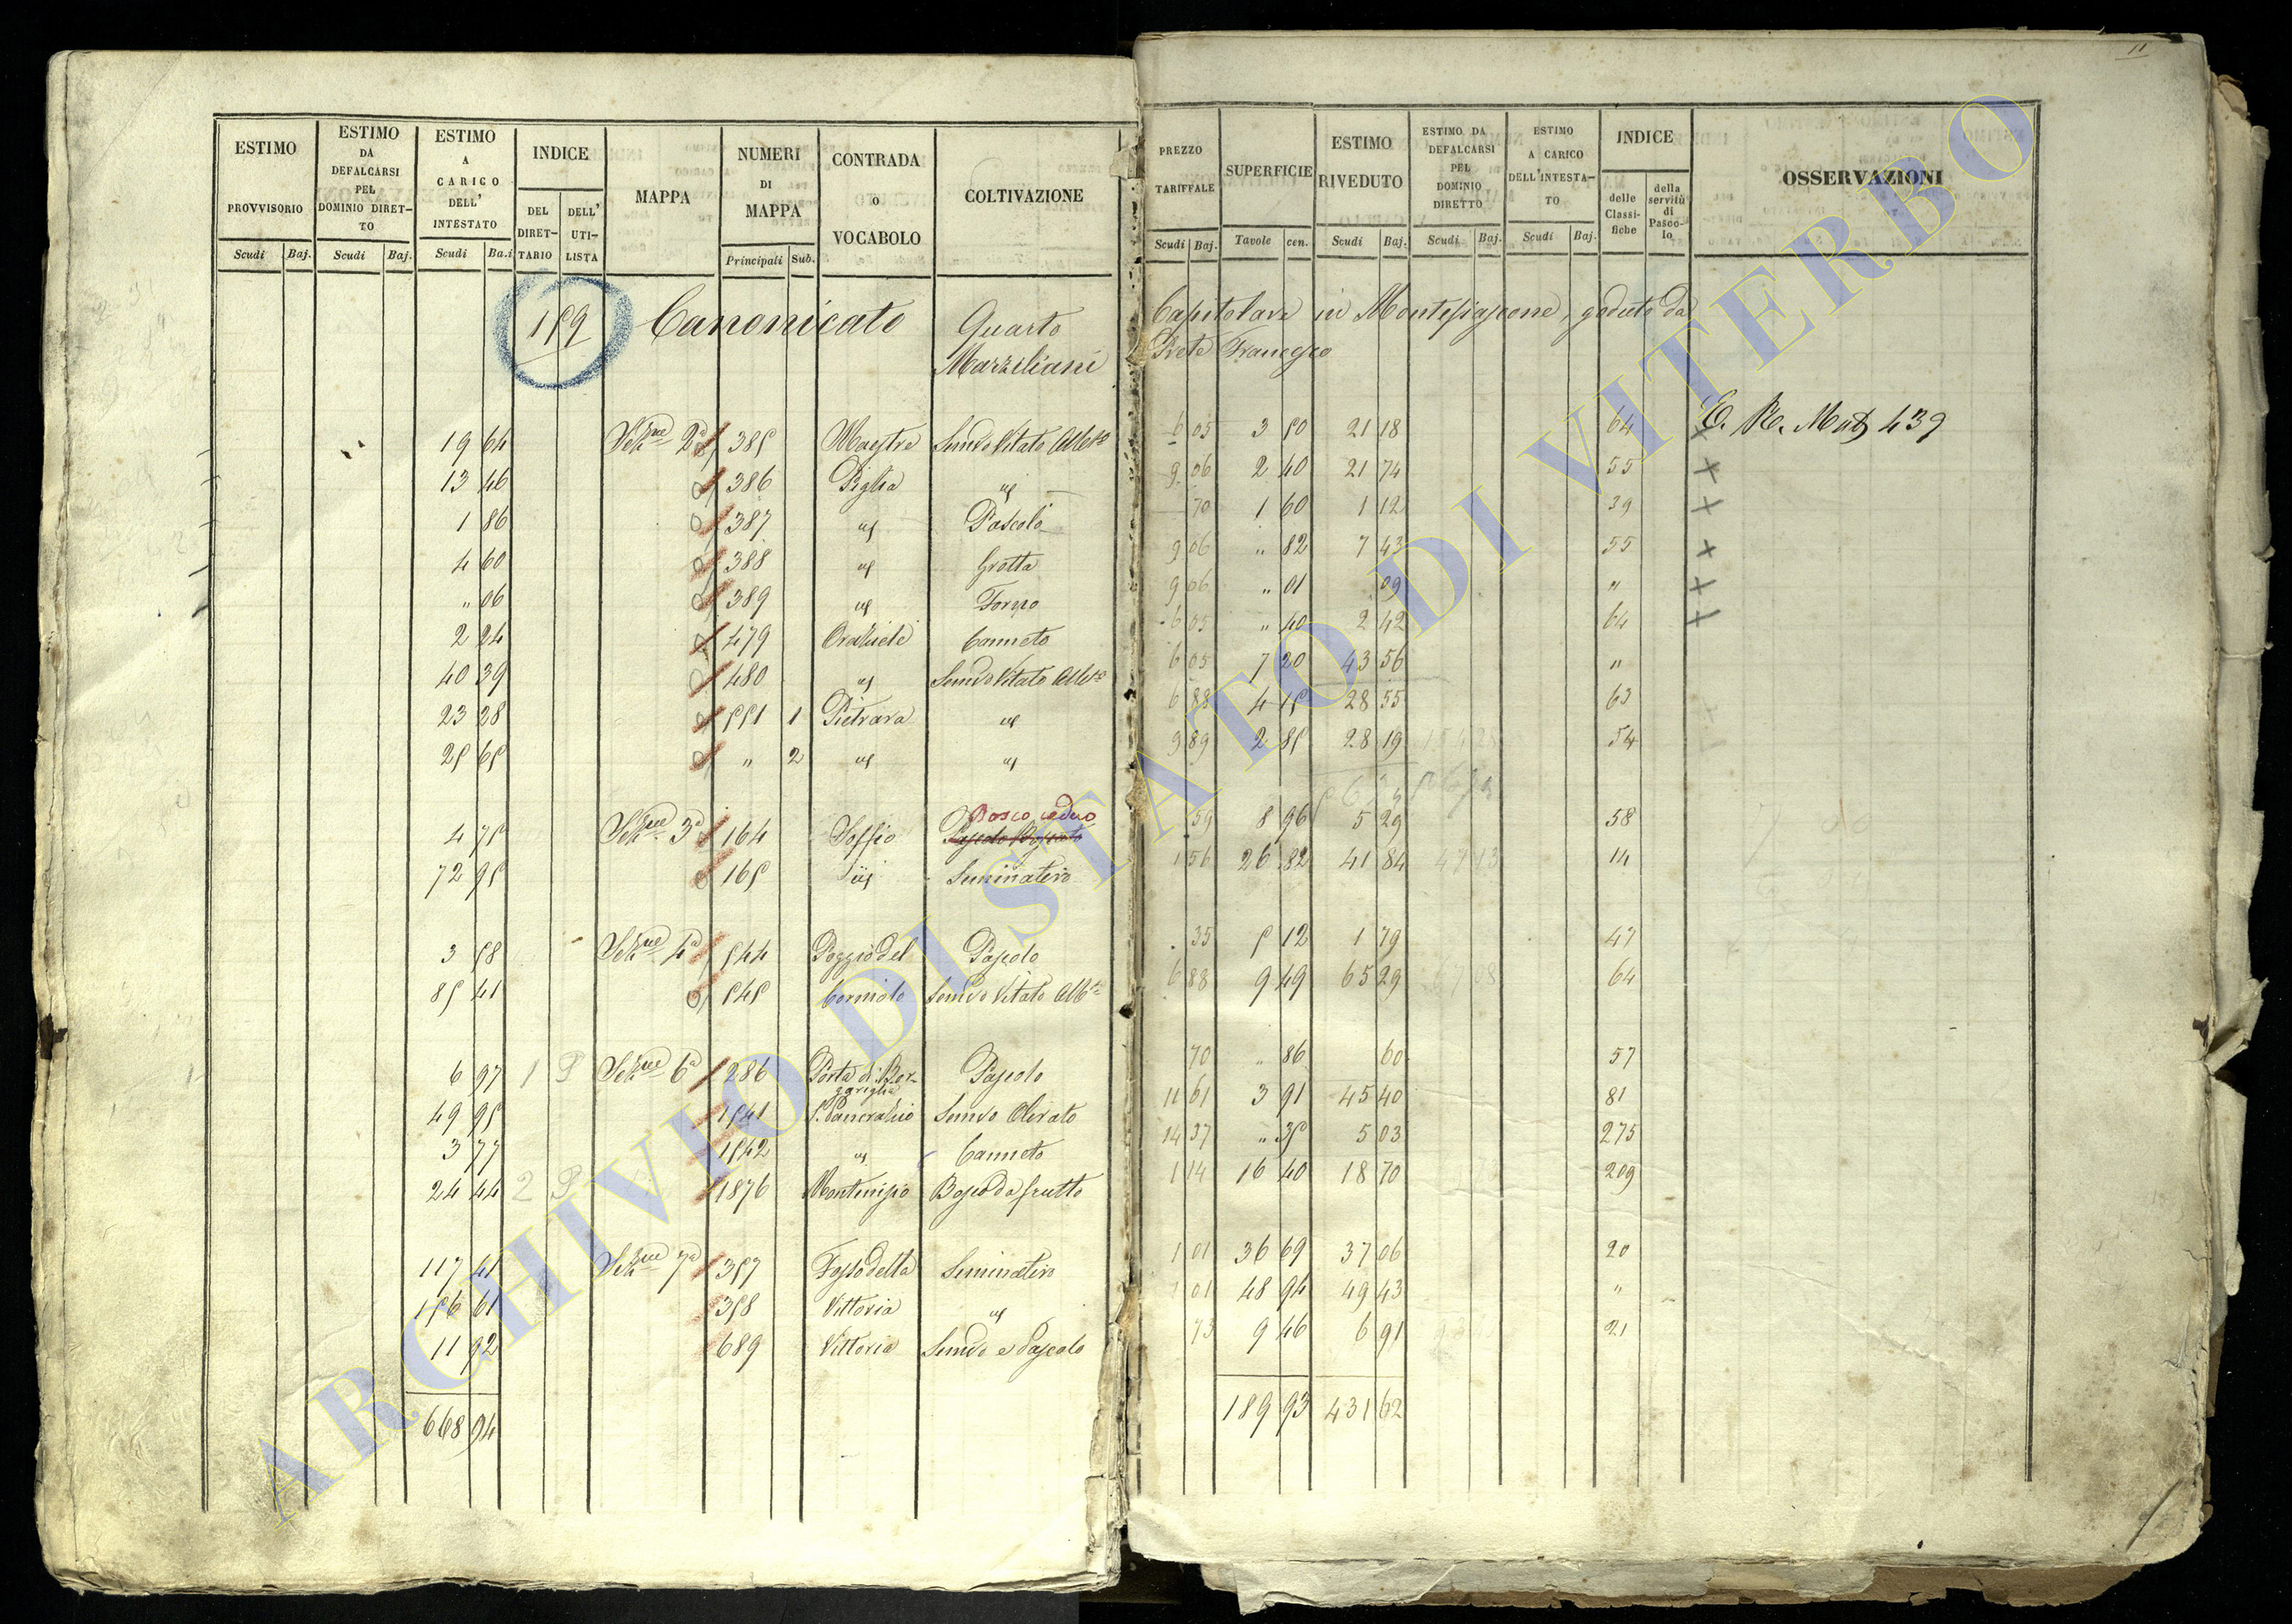 11
ESTIMO PROVVISORIO Scudi Baj. | ESTIMO DA DEFALCARSI PEL DOMINIO DIRET-TO Scudi Baj. | ESTIMO A CARICO DELL' INTESTATO Scudi Ba.i | INDICE DEL DIRET-TARIO DELL' UTI-LISTA | MAPPA | NUMERI DI MAPPA Principali Sub. | CONTRADA O VOCABOLO | COLTIVAZIONE | PREZZO TARIFFALE Scudi Baj. | SUPERFICIE Tavole cen. | ESTIMO RIVEDUTO Scudi Baj. | ESTIMO DA DEFALCARSI PEL DOMINIO DIRETTO Scudi Baj. | ESTIMO A CARICO DELL'INTESTA-TO Scudi Baj. | INDICE delle Classi-fiche della servitù di Pasco-lo | OSSERVAZIONI
159 Canonicato Quarto Capitolare in Montefiascone, goduto da
Marziliani Prete Francesco
19 64 Sezne 2a 385 Maestre Semvo Vitato Albto 6 05 3 50 21 18 64 439
13 46 386 Piglia id 9 06 2 40 21 74 55 x
1 86 387 id Pascolo 70 1 60 1 12 39 x
4 60 388 id Grotta 9 06 " 82 7 43 55 x
" 06 389 id Forno 9 06 " 01 09 " x
2 24 479 Canneto 6 05 " 40 2 42 64 x
40 39 480 id Semvo Vitato Albto 6 05 7 20 43 56 "
23 28 551 1 Pietrara id 6 88 4 15 28 55 63
25 65 " 2 id id 9 89 2 85 28 19 54
Bosco ceduo
4 75 Sezne 3a 164 Soffio 59 8 96 5 29 58
72 95 165 id Seminativo 1 56 26 82 41 84 14
3 58 Sezne 4a 544 Poggio del Pascolo 35 5 12 1 79 47
85 41 545 Corniolo Semvo Vitato Albto 6 88 9 49 65 29 64
6 97 1 P Sezne 6a 286 Porta di Bor- Pascolo 70 " 86 60 57
gariglia
49 95 1541 S. Pancrazio Semvo Olivato 11 61 3 91 45 40 81
3 77 1542 id Canneto 14 37 " 35 5 03 275
24 44 2 P 1876 Montenisio Bosco da frutto 1 14 16 40 18 70 209
117 41 Sezne 7a 357 Fosso della Seminativo 1 01 36 69 37 06 20
156 61 358 Vittoria id 1 01 48 94 49 43 "
11 92 689 Vittoria Semvo e Pascolo 73 9 46 6 91 21
668 94 189 93 431 62
ARCHIVIO DI STATO DI VITERBO